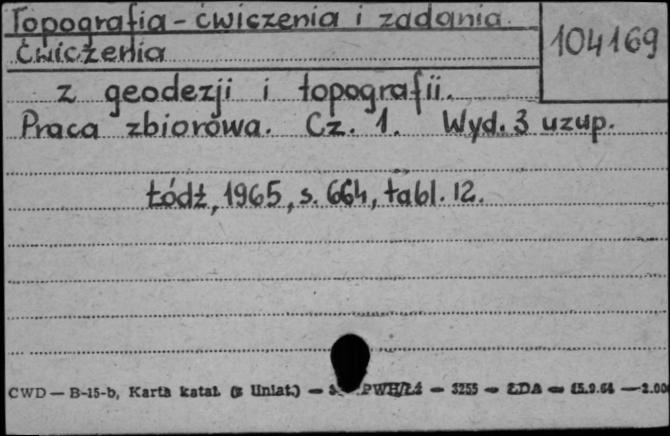 Topografia - ćwiczenia i zadania.
104169
Ćwiczenia
z geodezji i topografii.
Praca zbiorowa. Cz. 1. Wyd. 3 uzup.
Łódź, 1965, s. 664, tabl. 12.
CWD — B-15-b, Karta katal. (z Uniat.) — PWH/Łź — 3255 — ŁDA — 15.9.64 — 2.00